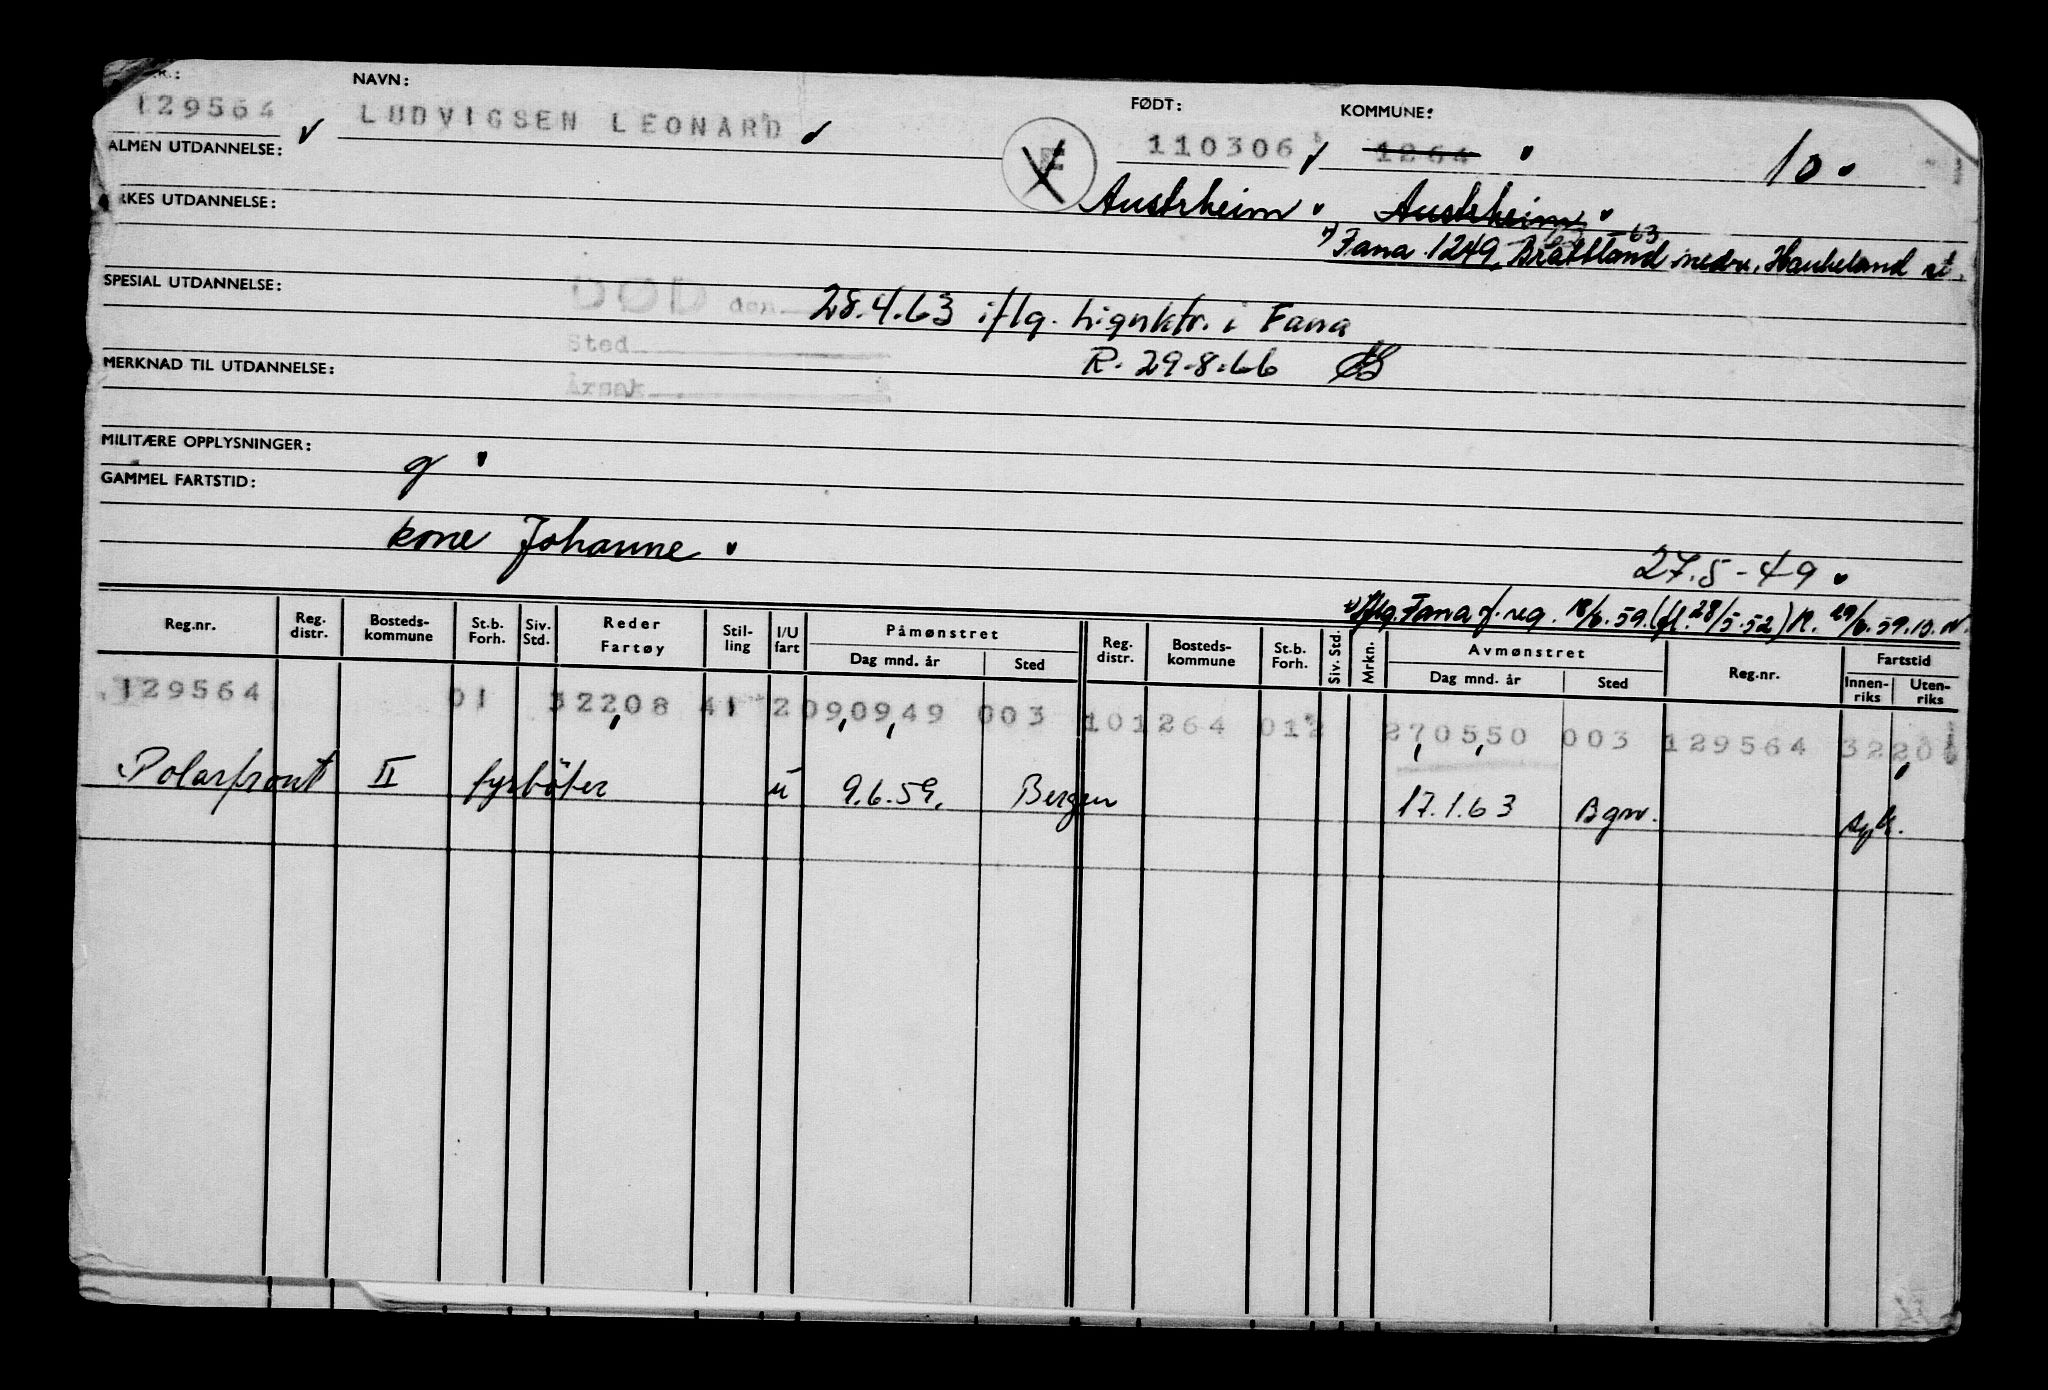 NAVN: FØDT: KOMMUNE:
129564 LUDVIGSEN LEONARD 110306 1264 10
ALMEN UTDANNELSE:
Austrheim Austrheim
RKES UTDANNELSE:
Fana 1249, Brattland nedre, Haukeland st.
63
SPESIAL UTDANNELSE:
DØD den 28.4.63 iflg. lignktr. i Fana
Sted
R. 29.8.66
MERKNAD TIL UTDANNELSE:
Årsak
MILITÆRE OPPLYSNINGER:
g
GAMMEL FARTSTID:
kone Johanne
27.5-49
Iflg. Fana f.reg. 18/6.59. (fl. 28/5.52) R. 29/6.59.
Reg.nr. Reg. distr. Bosteds-kommune St.b. Forh. Siv. Std. Reder Fartøy Stil-ling I/U fart Påmønstret Dag mnd. år Sted Reg. distr. Bosteds-kommune St.b. Forh. Siv. Std. Mrkn. Avmønstret Dag mnd. år Sted Reg.nr. Fartstid Innen-riks Uten-riks
129564 01 32208 41 2 090949 003 101264 012 270550 003 129564 32208
Polarfront II fyrbøter u 9.6.59. Bergen 17.1.63 Bgn.